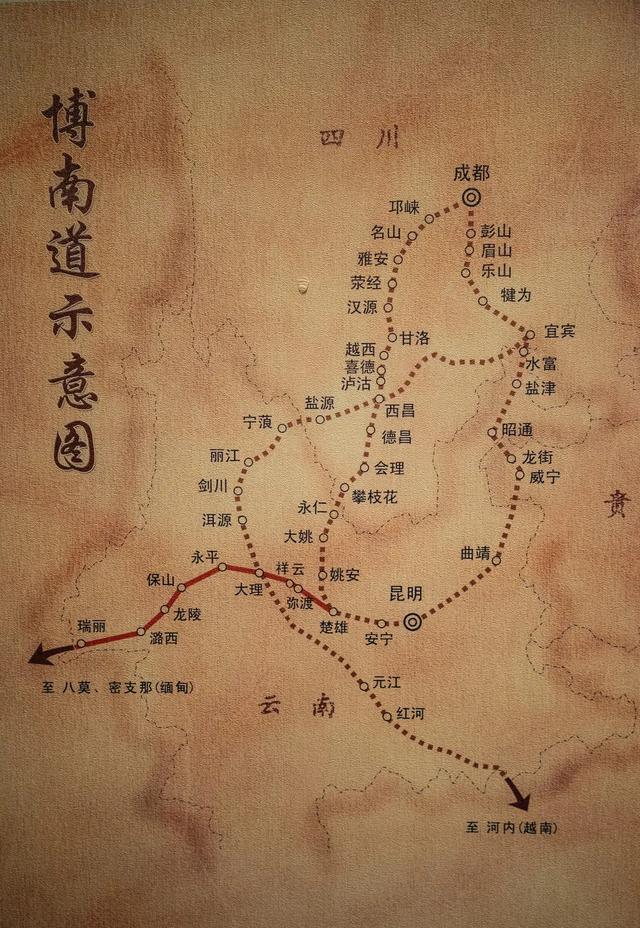 博南道示意图
四川
成都
邛崃
名山
彭山
眉山
雅安
乐山
荥经
犍为
汉源
宜宾
甘洛
越西
水富
喜德
泸沽
盐津
盐源
西昌
宁蒗
昭通
德昌
丽江
龙街
会理
威宁
剑川
攀枝花
贵
永仁
洱源
大姚
曲靖
永平
祥云
姚安
保山
大理
昆明
弥渡
龙陵
楚雄
瑞丽
潞西
安宁
至 八莫、密支那(缅甸)
元江
云南
红河
至 河内(越南)